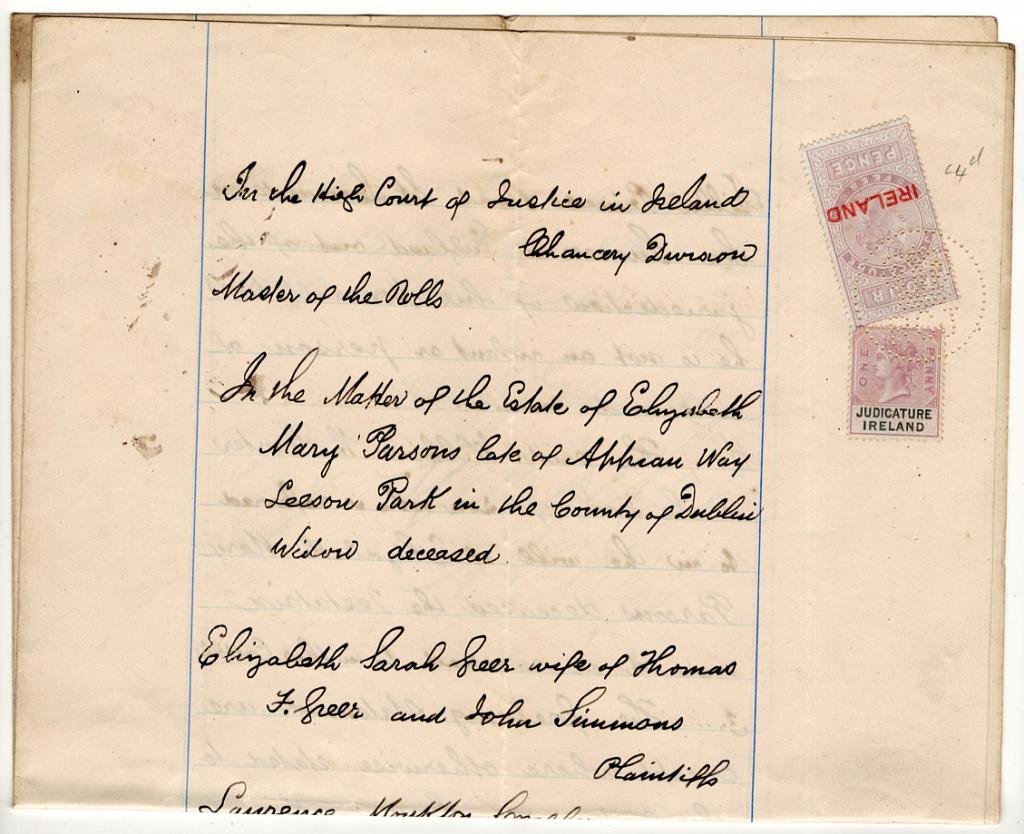 In the High Court of Justice in Ireland
Chancery Division
Master of the Rolls
In the Matter of the Estate of Elizabeth
Mary Parsons late of Appian Way
Leeson Park in the County of Dublin
Widow deceased
Elizabeth Sarah Greer wife of Thomas
F. Greer and John Simmons
Plaintiffs
Laurence
4d
PENCE
IRELAND
ONE PENNY
JUDICATURE
IRELAND